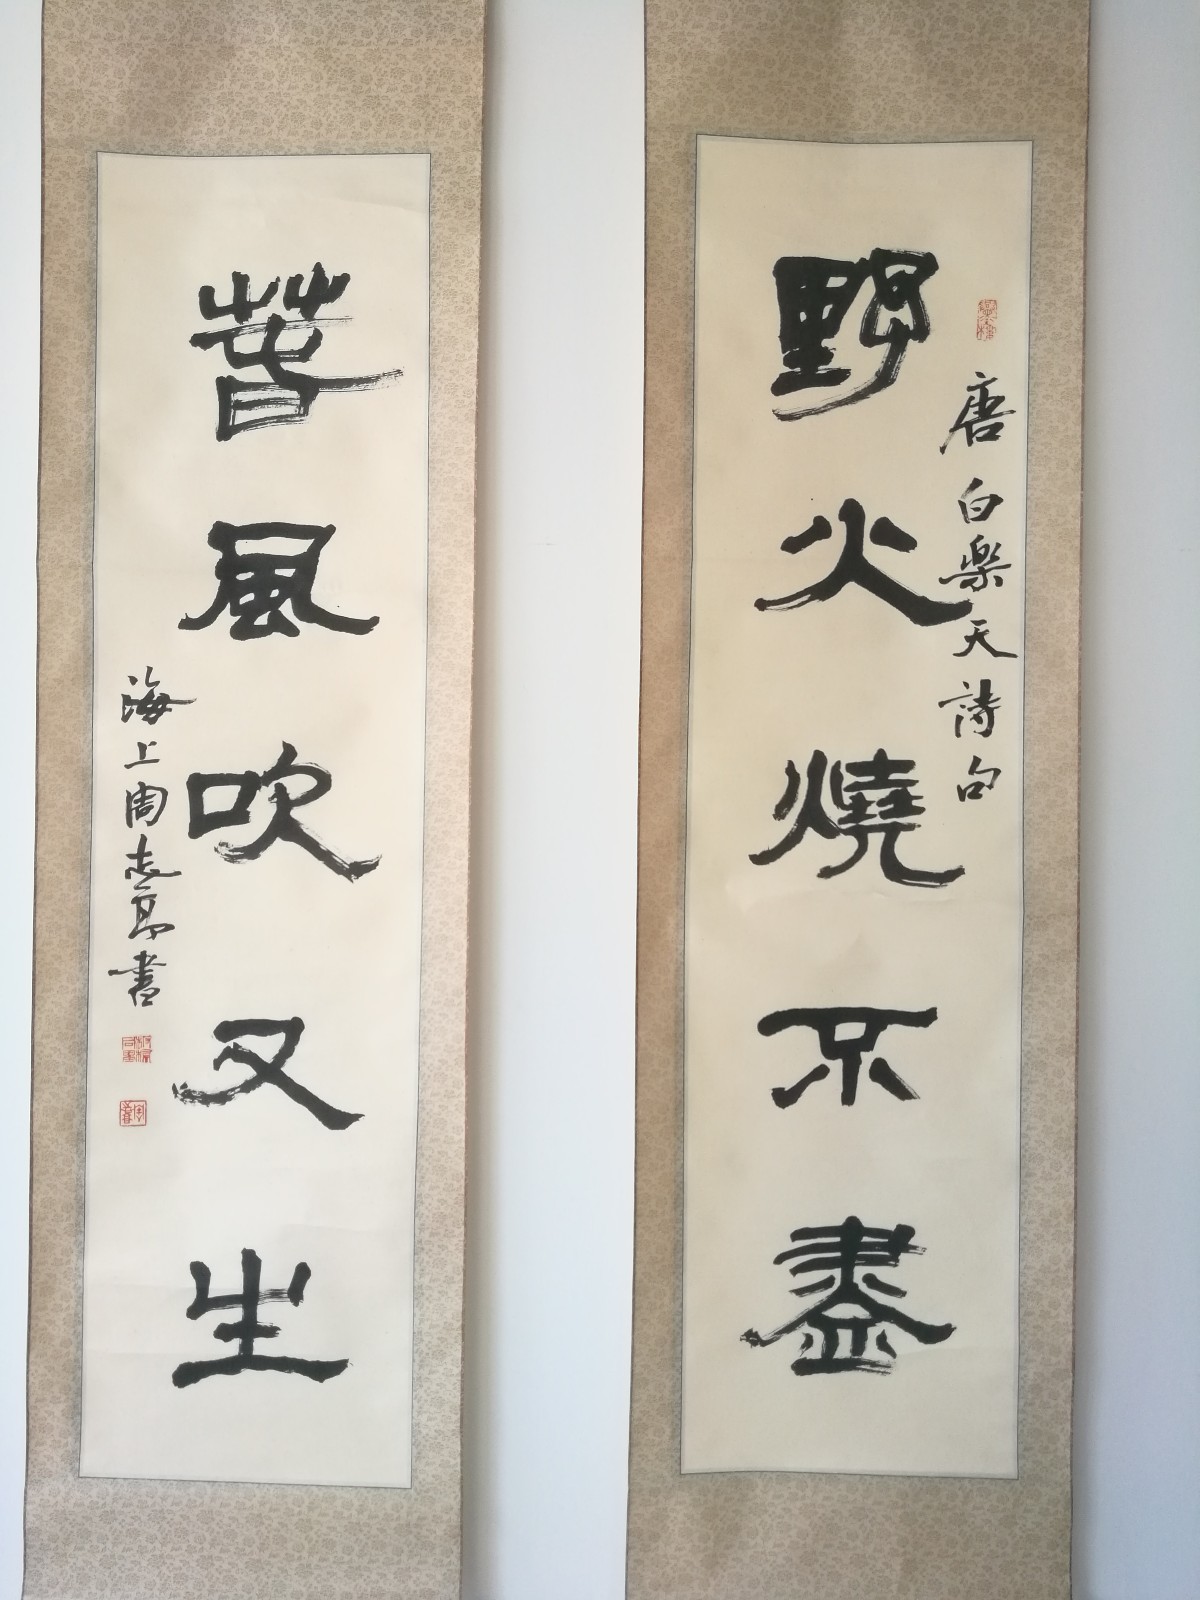 野火燒不盡
唐白樂天詩句
春風吹又生
海上周志高書